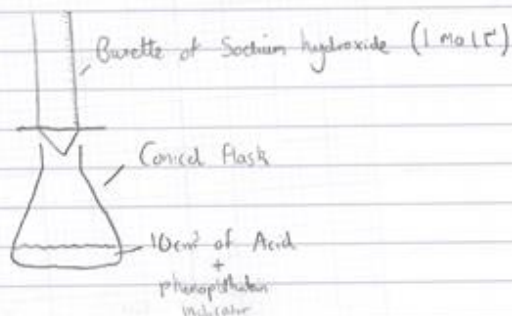 Burette of Sodium hydroxide (1 mol l⁻¹)
Conical Flask
10cm³ of Acid
+
indicator